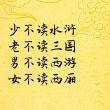 少不读水浒
老不读三国
男不读西游
女不读西厢